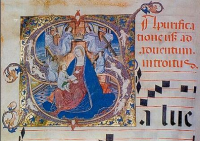 In purifica
tione usq ad
aduentum.
introitus
a lue